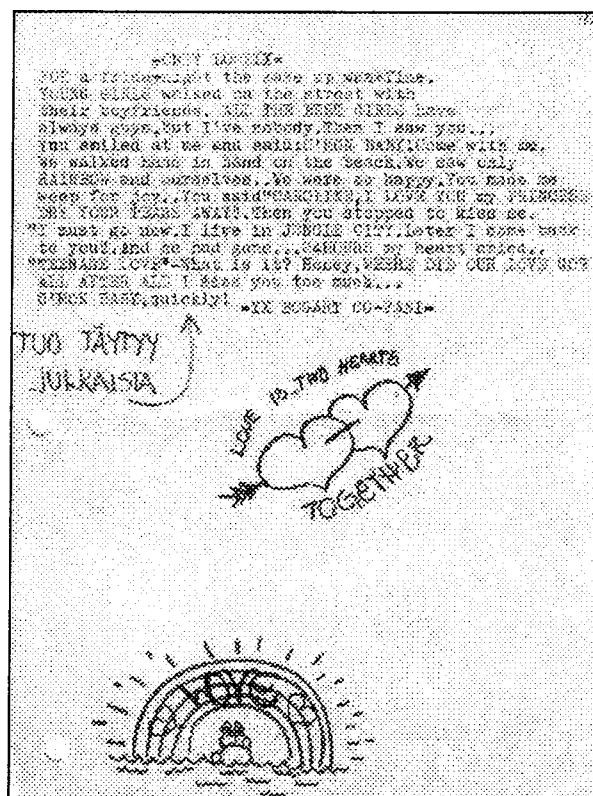 For a friday-night the
YOUNG GIRLS walked on the street with
their boyfriends. ALL THE GIRLS have
always guys,but I've nobody.Then I saw you...
You smiled at me and said: BABY!Come with me.
We walked hand in hand on the beach.We saw only
RAINBOW and ourselves..We were so happy.You made me
weep for joy..You said"CAROLINE,I LOVE YOU my PRINCESS
DRY YOUR TEARS AWAY!.Then you stopped to kiss me.
"I must go now.I live in JUNGLE CITY.Later I come back
to you",and he had gone... my heart cried..
"TEENAGE LOVE"-What is it? Honey,WHERE DID OUR LOVE GO?
ALL AFTER ALL I miss you too much...
COME BACK,quickly!
TUO TÄYTYY
JULKAISTA
LOVE IS..TWO HEARTS
TOGETHER
LOVE